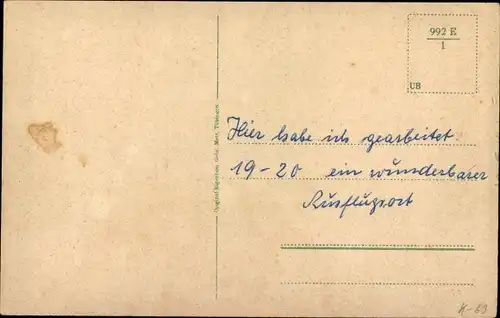 992 E
1
UB
Hier habe ich gearbeitet
19-20 ein wunderbarer
Ausflugsort
Gebr. Metz, Tübingen
K-63